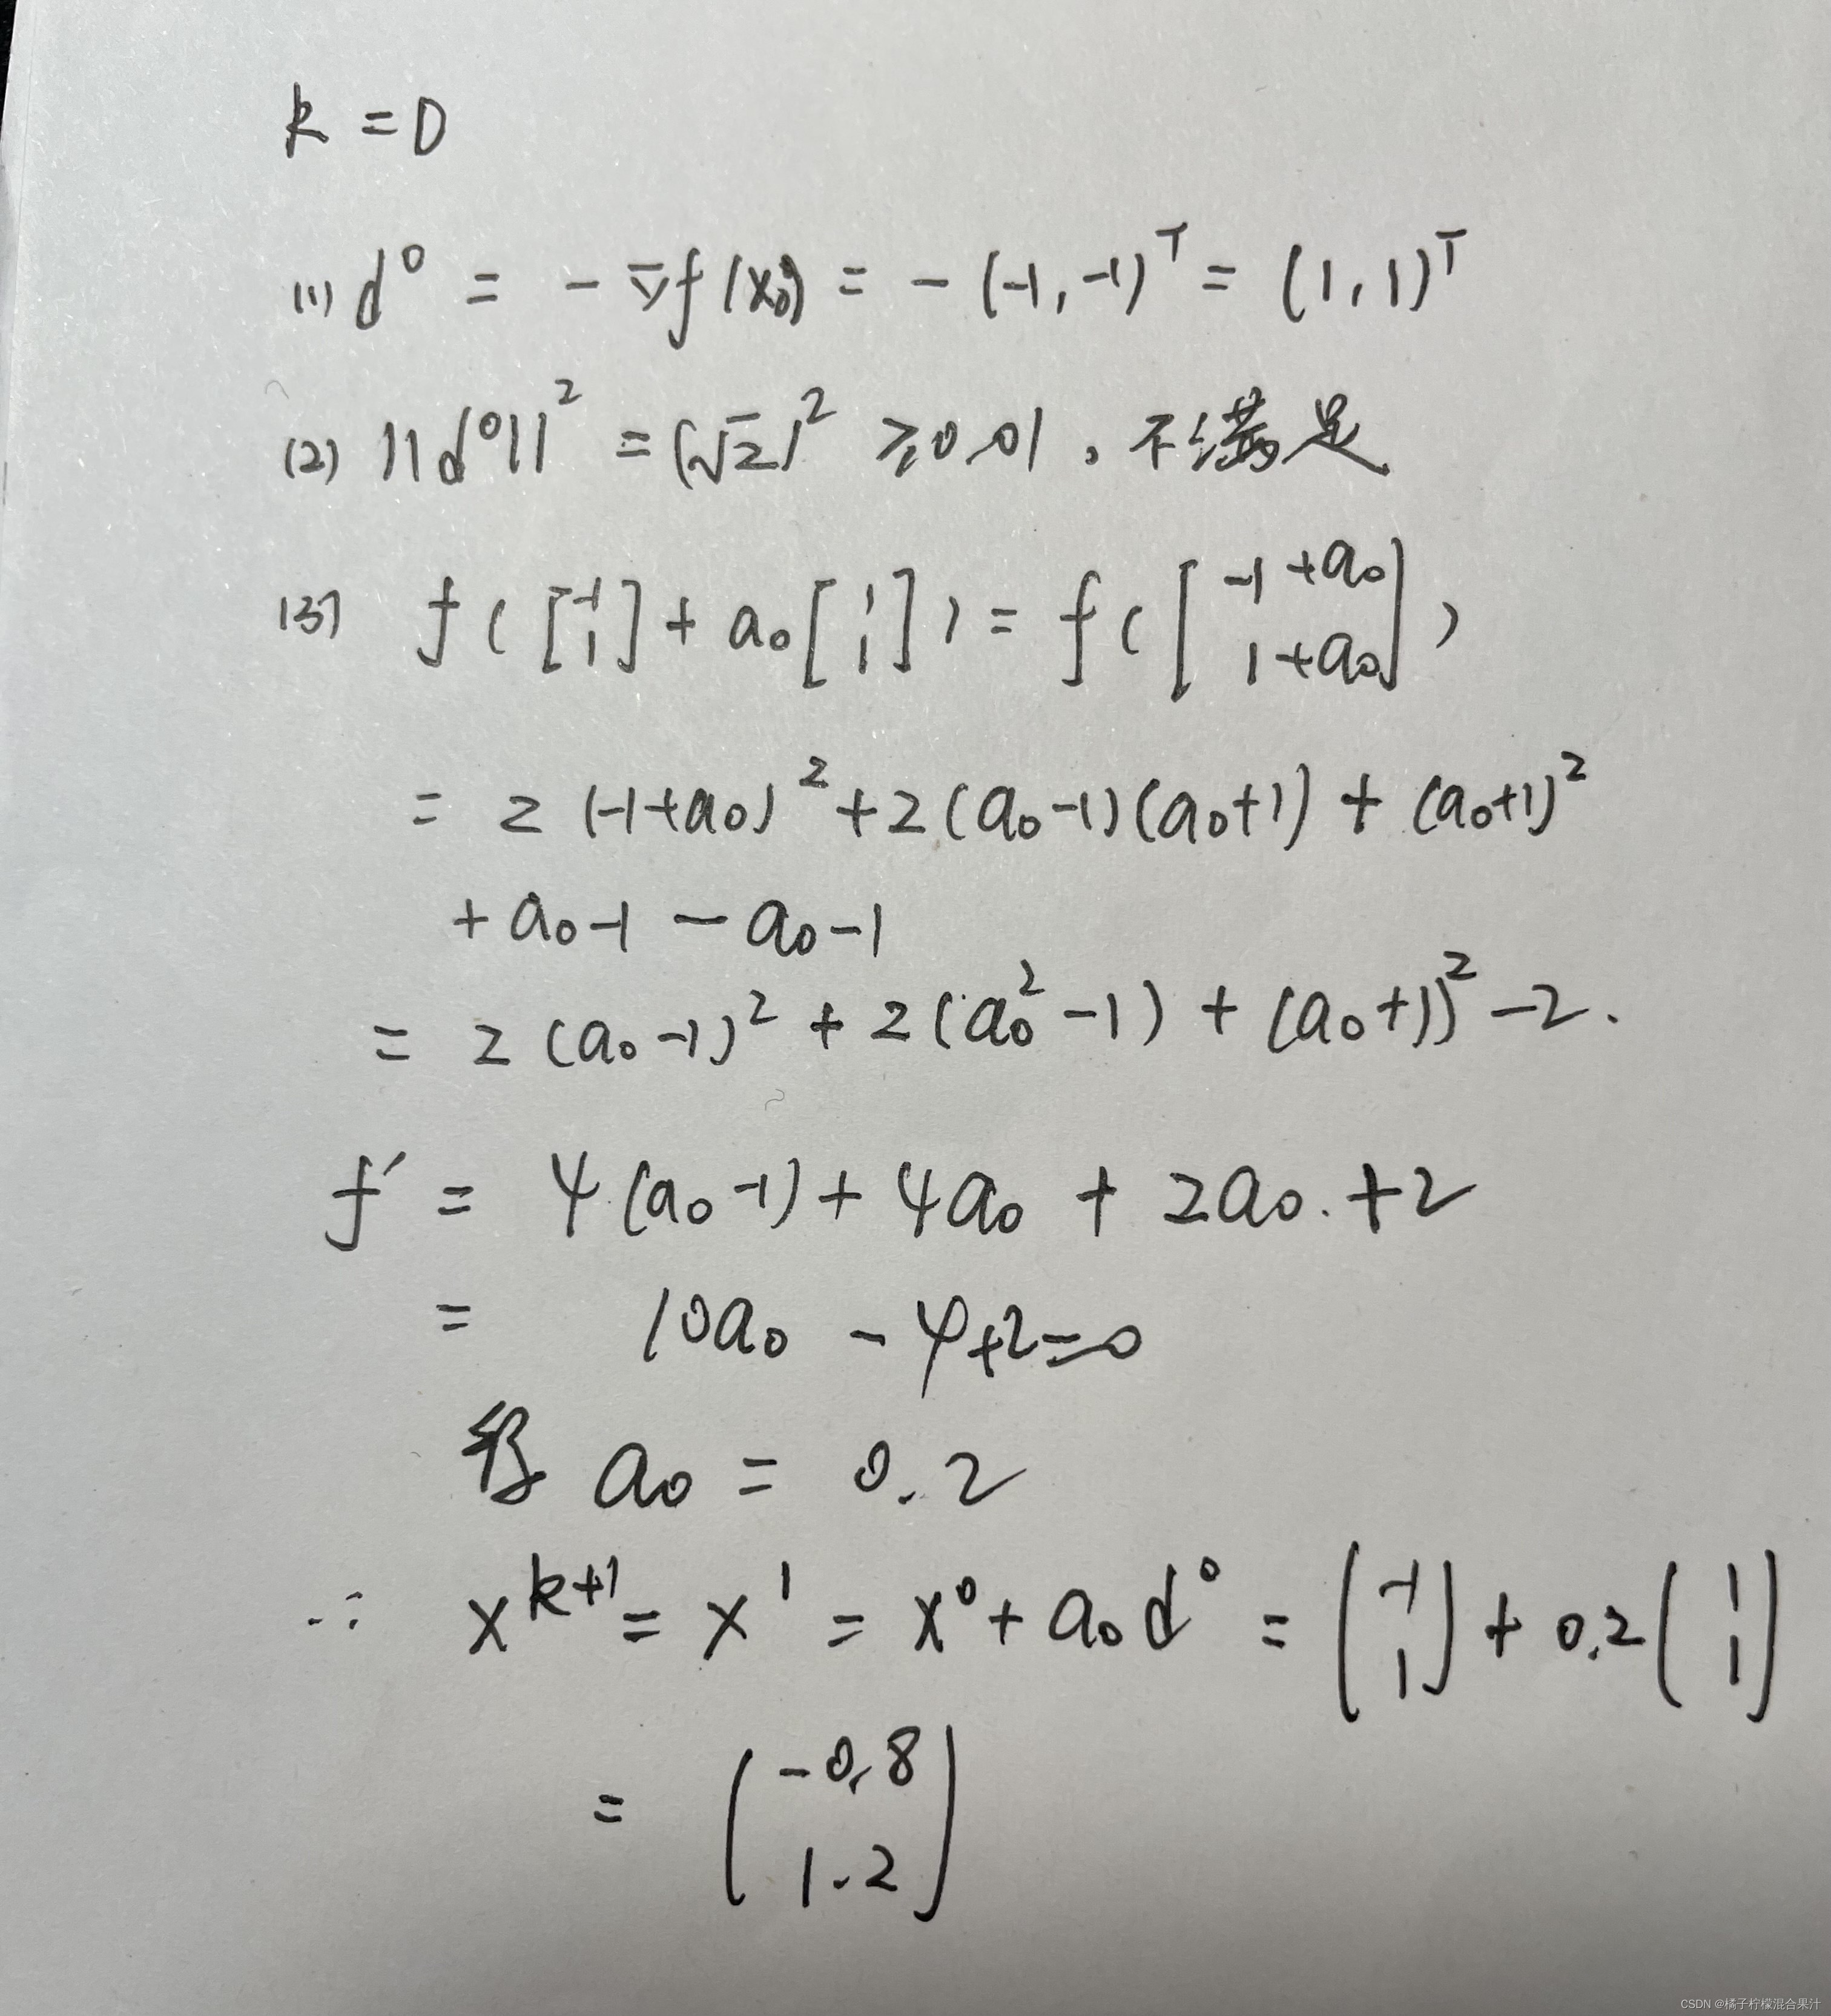 k = 0
(1) d⁰ = - ∇f(x₀) = - (-1, -1)ᵀ = (1, 1)ᵀ
(2) ||d⁰||² = (√2)² ≥ 0.01, 不满足
(3) f([-1 1] + a₀[1 1]) = f([-1+a₀ 1+a₀])
= 2(-1+a₀)² + 2(a₀-1)(a₀+1) + (a₀+1)²
+ a₀-1 - a₀-1
= 2(a₀-1)² + 2(a₀²-1) + (a₀+1)² - 2.
f′ = 4(a₀-1) + 4a₀ + 2a₀ + 2
= 10a₀ - 4+2=0
得 a₀ = 0.2
∴ xᵏ⁺¹ = x¹ = x⁰ + a₀d⁰ = (-1 1) + 0.2(1 1)
= (-0.8 1.2)
CSDN @橘子柠檬混合果汁